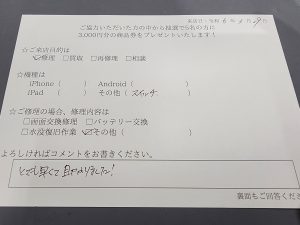 来店日：令和6年2月29日
ご協力いただいた方の中から抽選で5名の方に
3,000円分の商品券をプレゼントいたします！
☆ご来店目的は
☑修理 □買取 □再修理 □相談
☆機種は
iPhone（ ） Android（ ）
iPad（ ） その他（スイッチ）
☆ご修理の場合、修理内容は
□画面交換修理 □バッテリー交換
□水没復旧作業 ☑その他（ ）
よろしければコメントをお書きください。
とても早くて助かりました！
裏面もご回答くださ